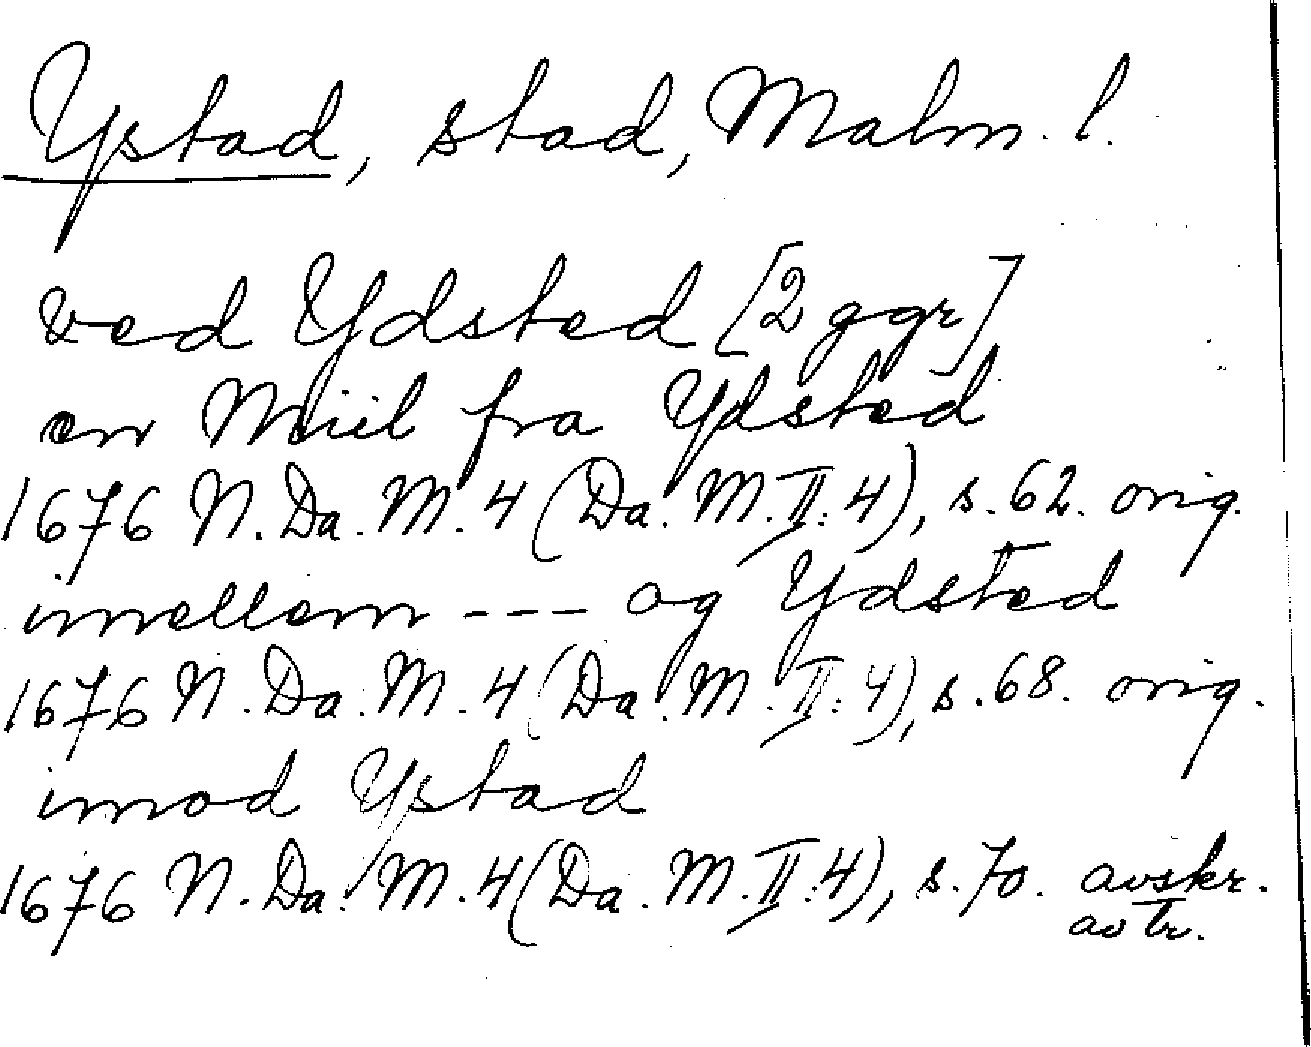 Ystad, stad, Malm. l.
ved Ydsted [2 ggr]
en Miil fra Ydsted
1676 N. Da. M. 4 (Da. M. II. 4), s. 62. orig.
imellem --- og Ydsted
1676 N. Da. M. 4 (Da. M. II. 4), s. 68. orig.
imod Ystad
1676 N. Da. M. 4 (Da. M. II. 4), s. 70. avskr.
av tr.